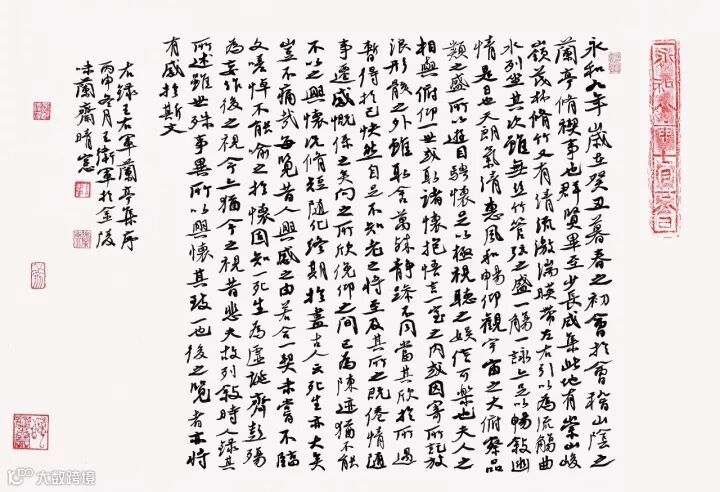 永和九年歲在癸丑暮春之初會於會稽山陰之
蘭亭脩稧事也群賢畢至少長咸集此地有崇山峻
嶺茂林脩竹又有清流激湍暎帶左右引以為流觴曲
水列坐其次雖無絲竹管弦之盛一觴一詠亦足以暢敘幽
情是日也天朗氣清惠風和暢仰觀宇宙之大俯察品
類之盛所以遊目騁懷足以極視聽之娛信可樂也夫人之
相與俯仰一世或取諸懷抱悟言一室之內或因寄所託放
浪形骸之外雖取舍萬殊靜躁不同當其欣於所遇
暫得於己快然自足不知老之將至及其所之既倦情隨
事遷感慨係之矣向之所欣俛仰之間已為陳迹猶不能
不以之興懷況脩短隨化終期於盡古人云死生亦大矣
豈不痛哉每覽昔人興感之由若合一契未嘗不臨
文嗟悼不能喻之於懷固知一死生為虛誕齊彭殤
為妄作後之視今亦猶今之視昔悲夫故列敘時人錄其
所述雖世殊事異所以興懷其致一也後之覽者亦將
有感於斯文
右錄王右軍蘭亭集序
丙申冬月王衛軍於金陵
味蘭齋晴窗
大数跨境